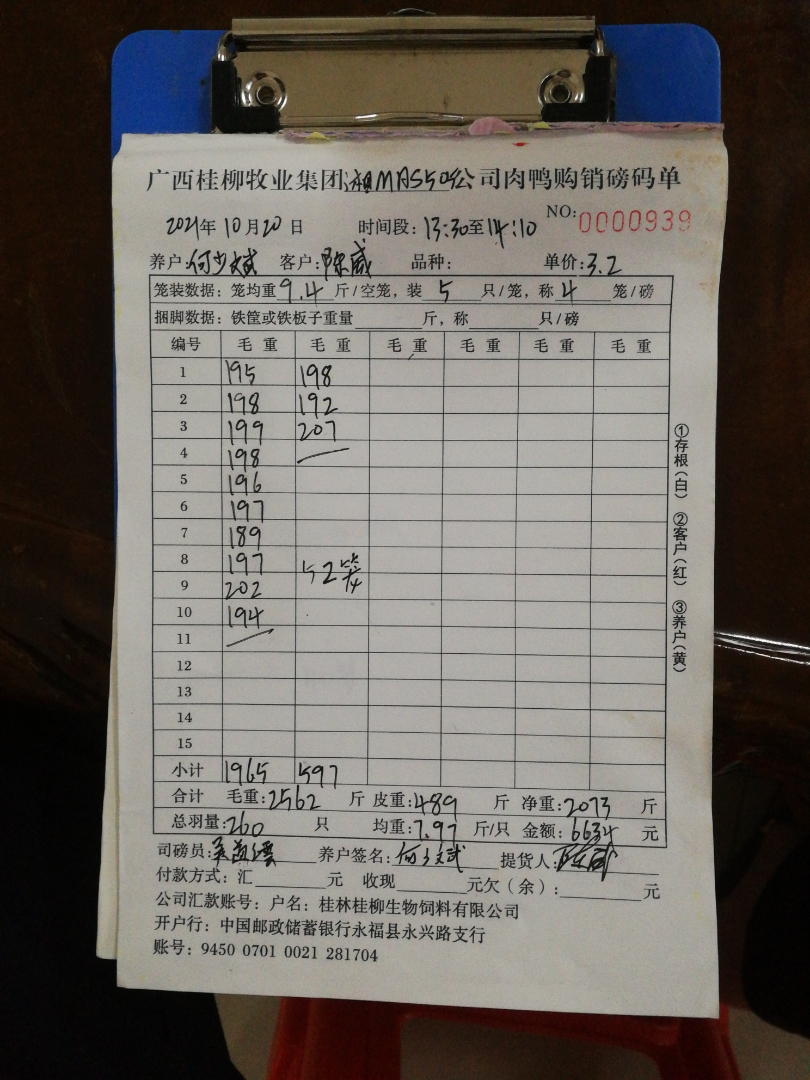 广西桂柳牧业集团湘MAS504公司肉鸭购销磅码单
NO: 0000939
2021年10月20日 时间段: 13:30至14:10
养户: 何少斌 客户: 陈威 品种: 单价: 3.2
笼装数据: 笼均重9.4斤/空笼, 装5只/笼, 称4笼/磅
捆脚数据: 铁筐或铁板子重量 斤, 称 只/磅
编号 毛重 毛重 毛重 毛重 毛重 毛重
1 195 198
2 198 192
3 199 207
4 198
5 196
6 197
7 189
8 197 52笼
9 202
10 194
11
12
13
14
15
小计 1965 597
合计 毛重: 2562 斤 皮重: 489 斤 净重: 2073 斤
总羽量: 260 只 均重: 7.97 斤/只 金额: 6634 元
司磅员: 养户签名: 提货人: 陈威
付款方式: 汇 元 收现 元欠(余): 元
公司汇款账号: 户名: 桂林桂柳生物饲料有限公司
开户行: 中国邮政储蓄银行永福县永兴路支行
账号: 9450 0701 0021 281704
①存根(白) ②客户(红) ③养户(黄)